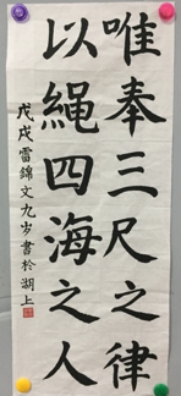 唯奉三尺之律
以繩四海之人
戊戌雷錦文九岁書於湖上